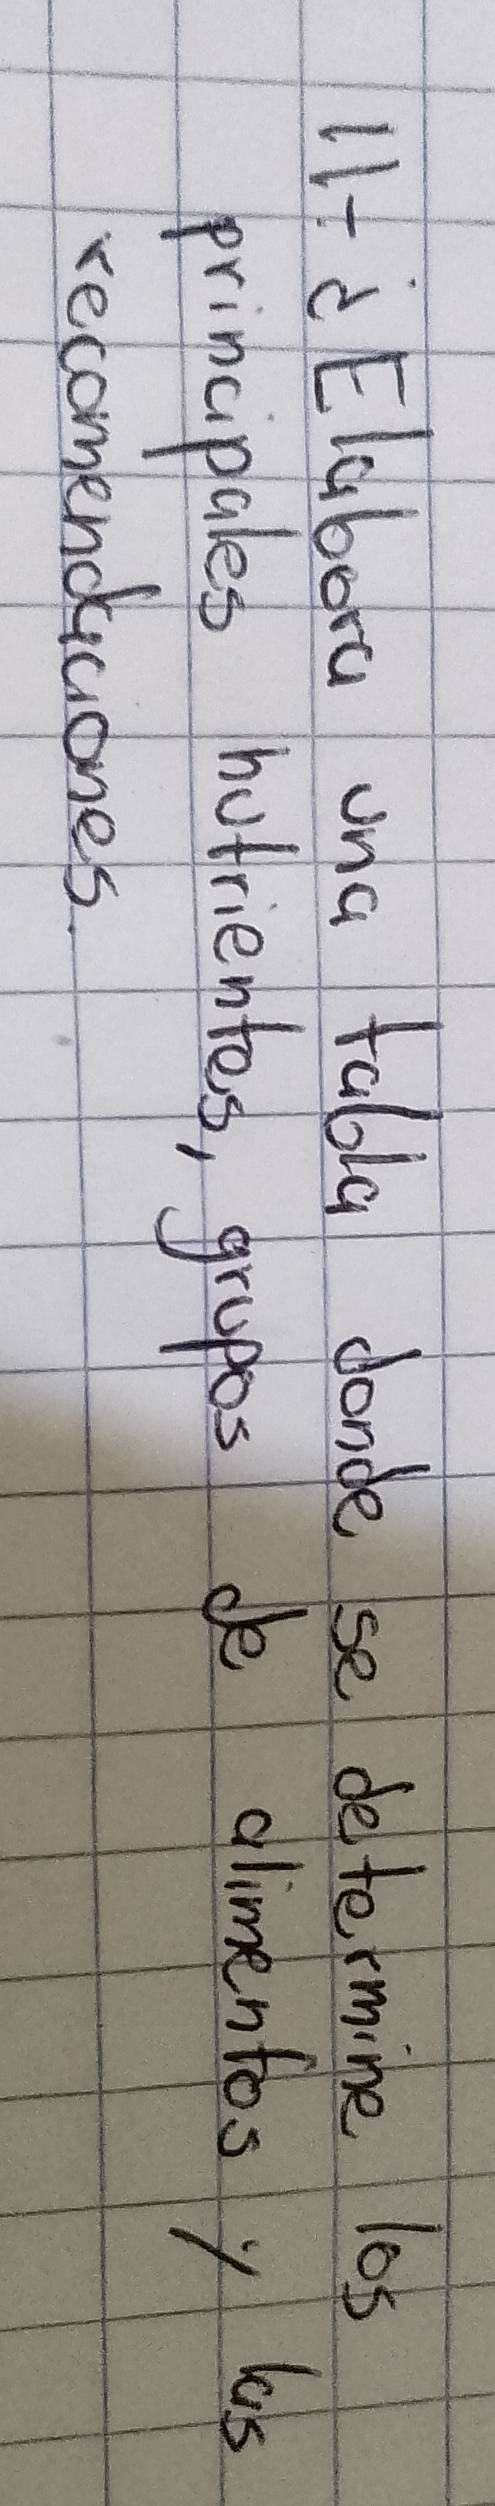 11- ¿Elabora una tabla donde se determine los
principales nutrientes, grupos de alimentos y las
recomendaciones.